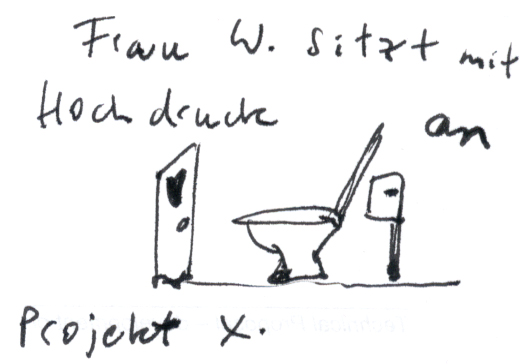 Frau W. sitzt mit
Hochdruck an
Projekt X.